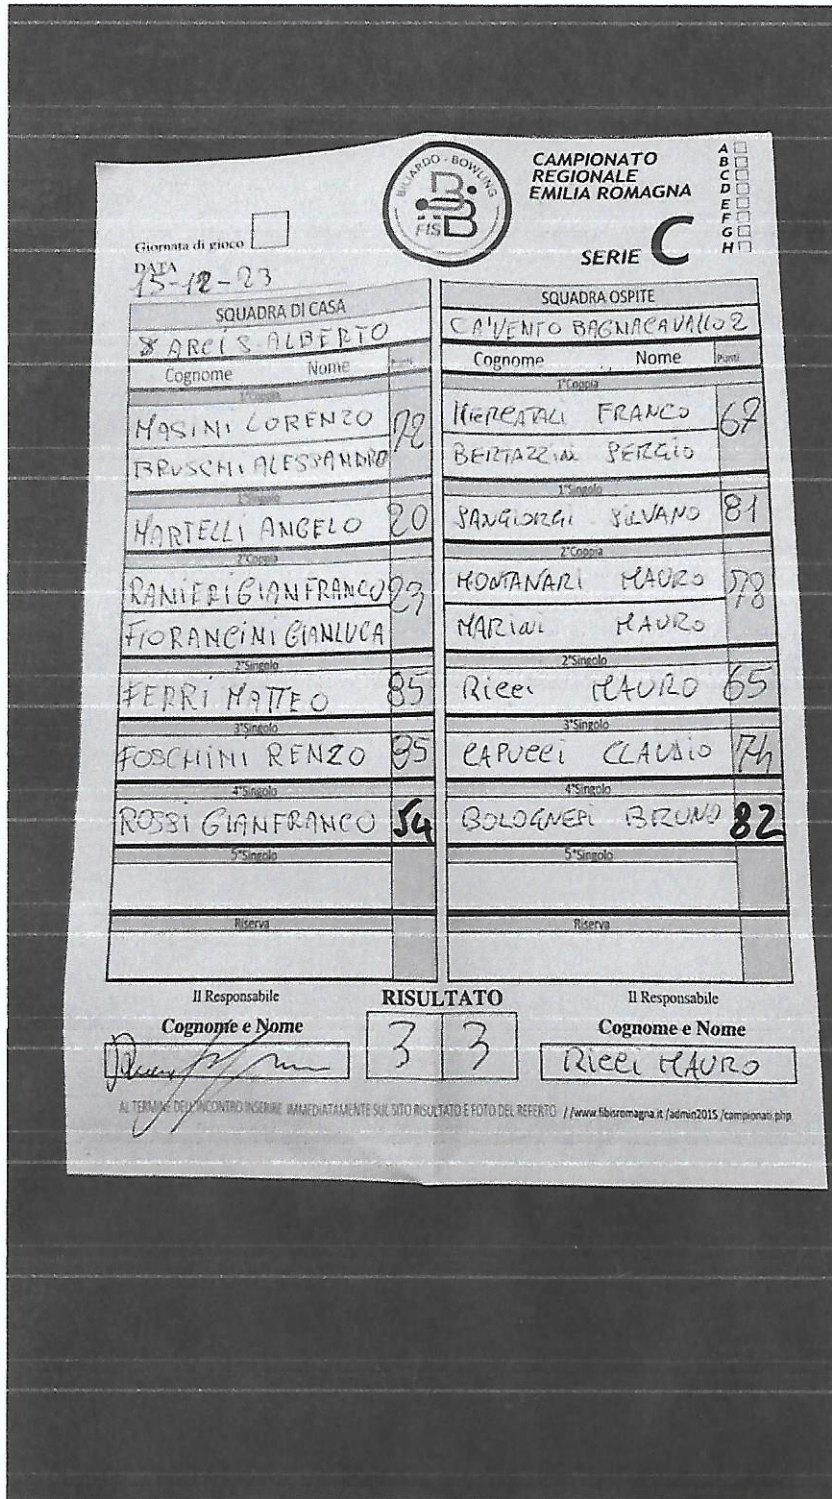 BILIARDO - BOWLING
FISBB
CAMPIONATO
REGIONALE
EMILIA ROMAGNA
SERIE C
A
B
C
D
E
F
G
H
Giornata di gioco
DATA
15-12-23
SQUADRA DI CASA
ARCI S. ALBERTO
Cognome Nome Punti
1°Coppia
MASINI LORENZO 72
BRUSCHI ALESSANDRO
1°Singolo
MARTELLI ANGELO 20
2°Coppia
RANIERI GIANFRANCO
FIORANCINI GIANLUCA
2°Singolo
FERRI MATTEO 85
3°Singolo
FOSCHINI RENZO
4°Singolo
ROSSI GIANFRANCO 54
5°Singolo
Riserva
SQUADRA OSPITE
CA'VENTO BAGNACAVALLO 2
Cognome Nome Punti
1°Coppia
MERCATALI FRANCO 67
BERTAZZINI SERGIO
1°Singolo
SANGIORGI SILVANO 81
2°Coppia
MONTANARI MAURO 78
MARINI MAURO
2°Singolo
RICCI MAURO 65
3°Singolo
CAPUCCI CLAUDIO 74
4°Singolo
BOLOGNESI BRUNO 82
5°Singolo
Riserva
Il Responsabile
Cognome e Nome
RISULTATO
3 3
Il Responsabile
Cognome e Nome
RICCI MAURO
AL TERMINE DELL'INCONTRO INSERIRE IMMEDIATAMENTE SUL SITO RISULTATO E FOTO DEL REFERTO //www.fibisromagna.it /admin2015 /campionati.php